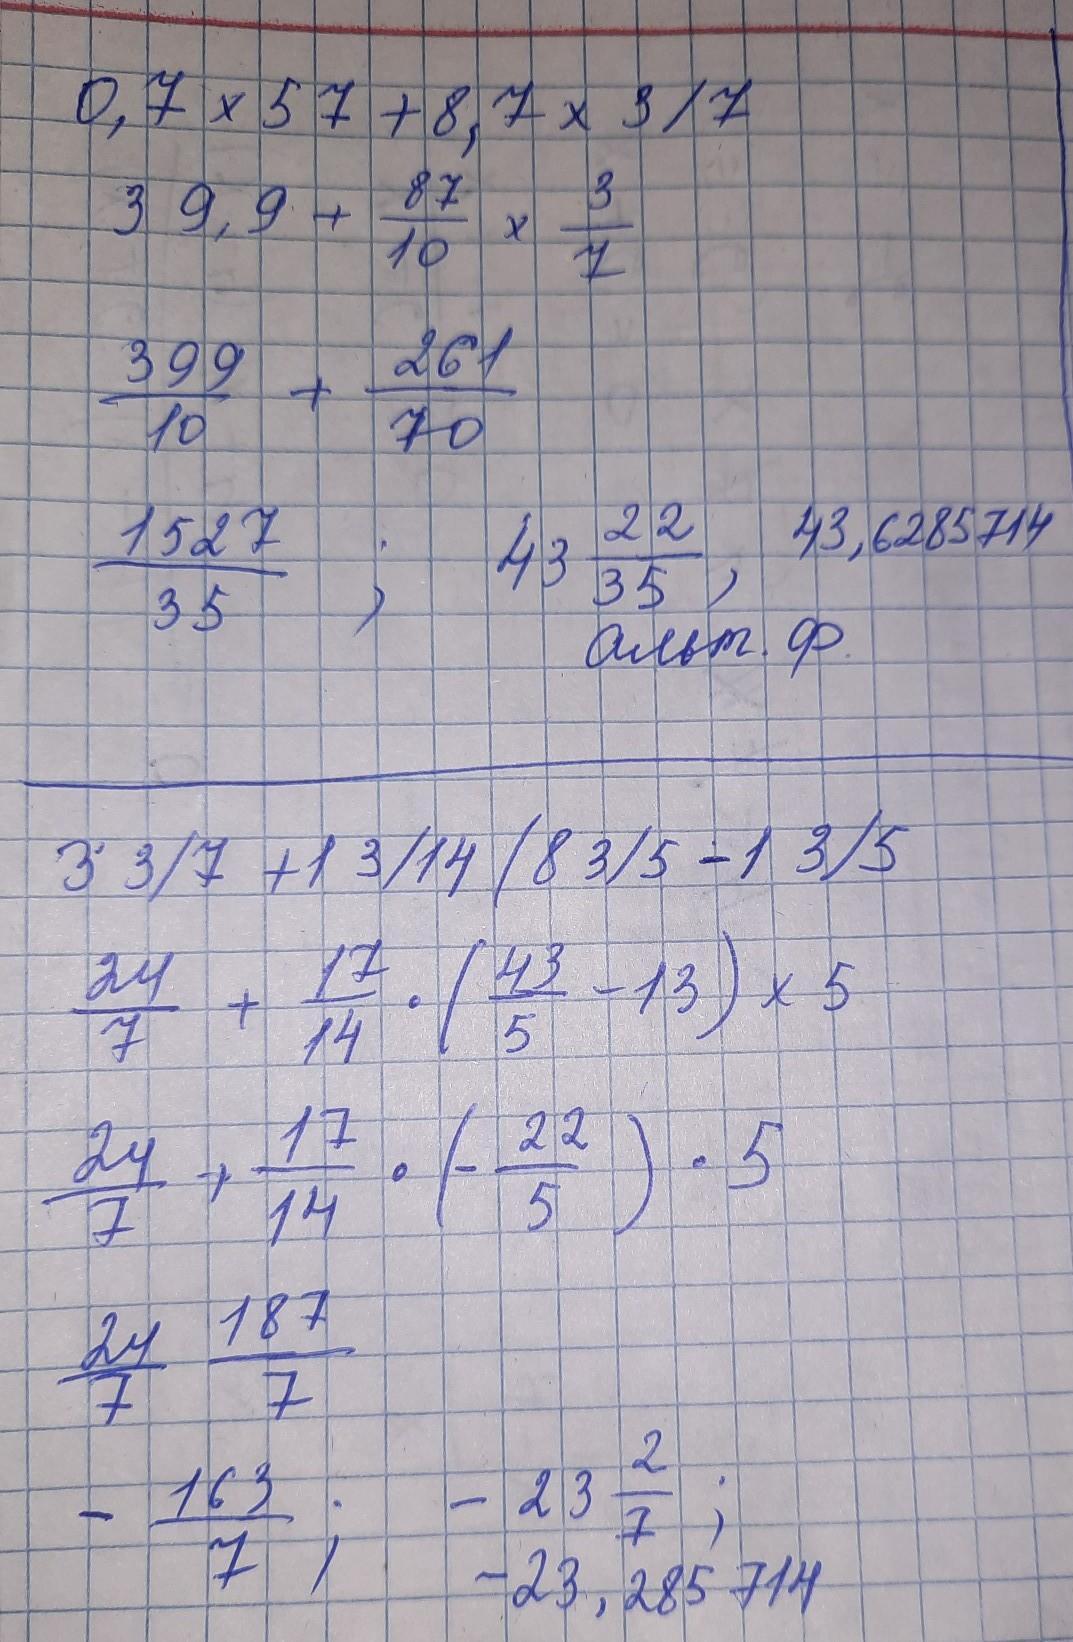 0,7 x 57 + 8,7 x 3/7
39,9 + 87/10 x 3/7
399/10 + 261/70
1527/35 ; 43 22/35, 43,6285714
альт. ф.
3 3/7 + 1 3/14 (8 3/5 - 1 3/5
24/7 + 17/14 · (43/5 - 13) x 5
24/7 + 17/14 · (- 22/5) · 5
24/7 187/7
- 163/7 ; - 23 2/7 ;
-23,285714